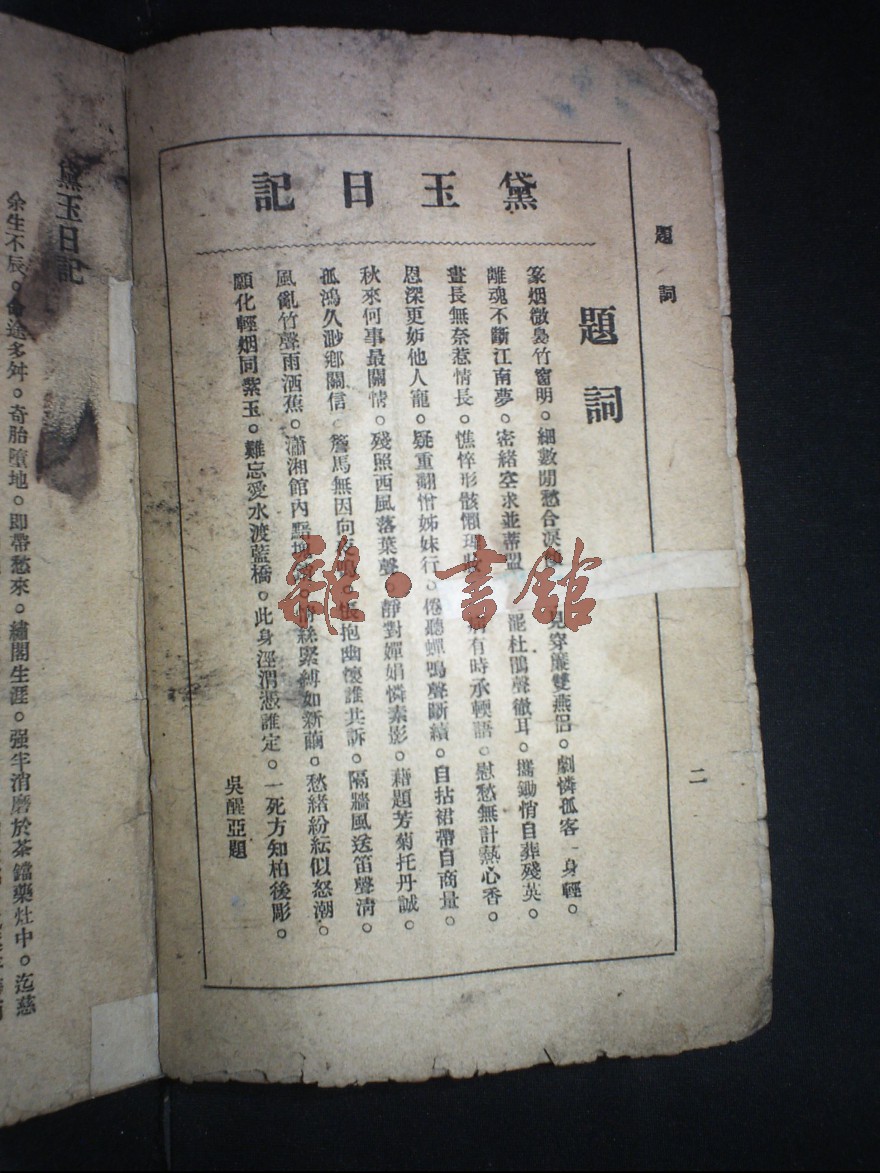 題詞
二
黛玉日記
題詞
篆烟微裊竹窗明。細數閒愁合淚 見穿簾雙燕侶。劇憐孤客一身輕。
離魂不斷江南夢。密緒空求並蒂盟 罷杜鵑聲徹耳。攜鋤悄自葬殘英。
晝長無奈惹情長。憔悴形骸懶理妝 病有時承輭語。慰愁無計熱心香。
恩深更妬他人寵。疑重翻憎姊妹行。倦聽蟬鳴聲斷續。自拈裙帶自商量。
秋來何事最關情。殘照西風落葉聲。靜對嬋娟憐素影。藉題芳菊托丹誠。
孤鴻久渺鄉關信。簷馬無因向夜鳴。悵抱幽懷誰共訴。隔牆風送笛聲清。
風亂竹聲雨洒蕉。瀟湘館內黯 情絲緊縛如新繭。愁緒紛紜似怒潮。
願化輕烟同紫玉。難忘愛水渡藍橋。此身涇渭憑誰定。一死方知柏後彫。
吳醒亞題
黛玉日記
余生不辰。命途多舛。奇胎墮地。即帶愁來。繡閣生涯。强半消磨於茶鐺藥灶中。迄慈
雜·書館